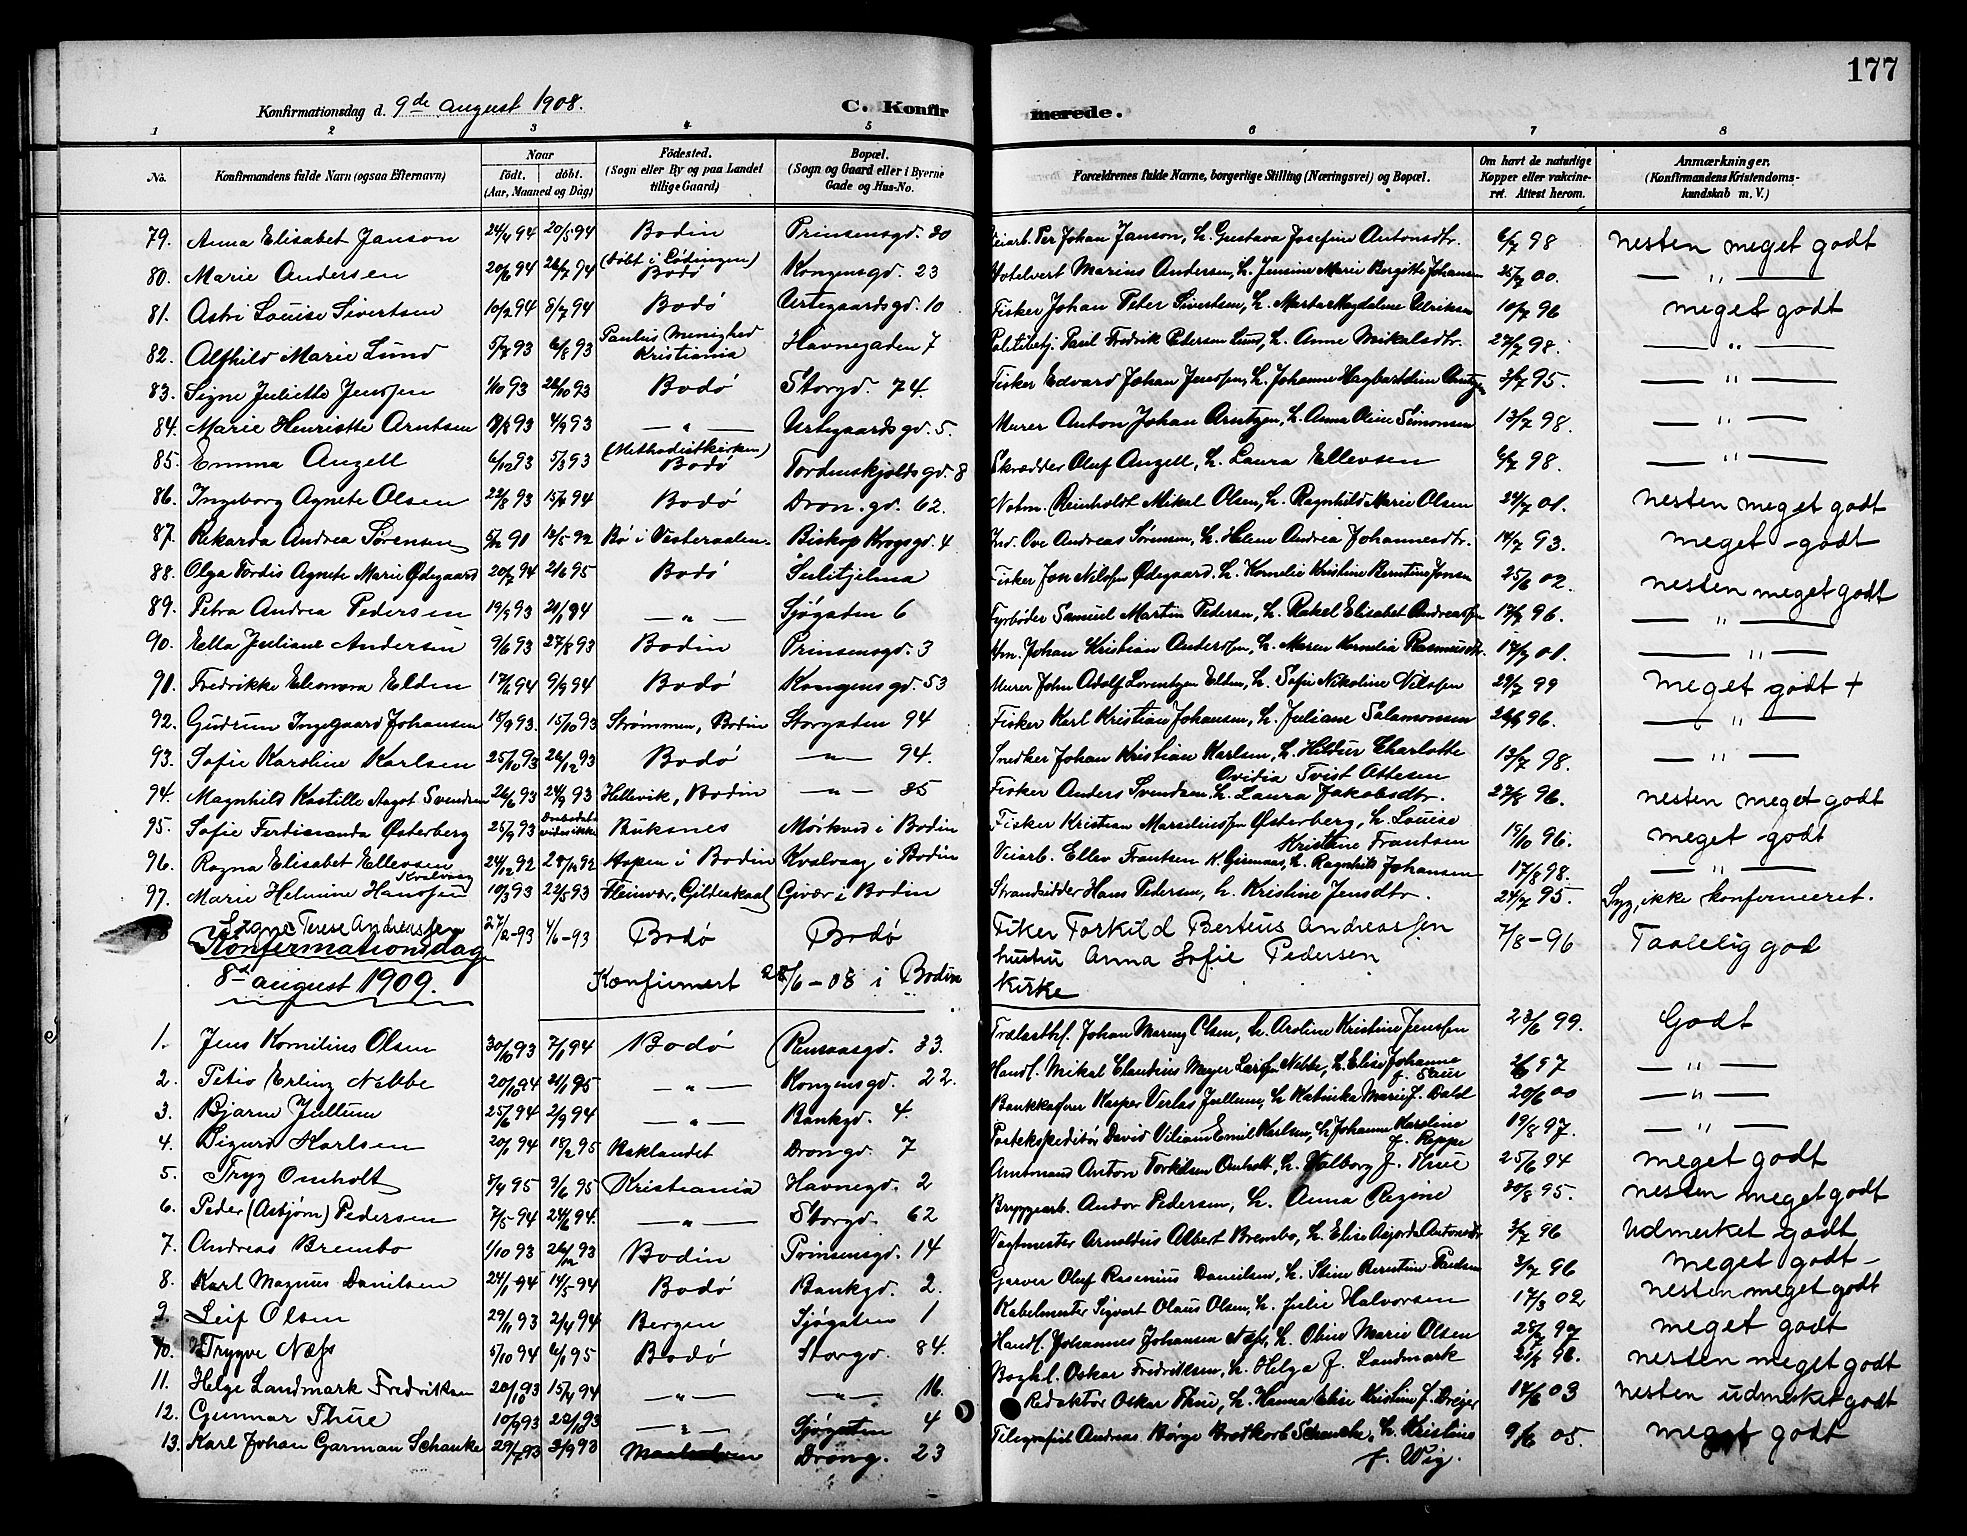 177
Konfirmationsdag d. 9de august 1908.
C. Konfirmerede.
1 2 3 4 5 6 7 8
No. Konfirmandens fulde Navn (ogsaa Efternavn) Naar födt. döbt. (Aar, Maaned og Dag) Födested. (Sogn eller By og paa Landet tillige Gaard) Bopæl. (Sogn og Gaard eller i Byerne Gade og Hus-No. Forældrenes fulde Navne, borgerlige Stilling (Næringsvei) og Bopæl. Om havt de naturlige Kopper eller vakcineret. Attest herom. Anmærkninger. (Konfirmandens Kristendomskundskab m. V.)
79. Anna Elisabet Janson 24/4 94 20/5 94 Bodin Prinsensgd. 20 Per Johan Janson, h. Gustava Josefine Antonsdtr. 6/7 98 nesten meget godt
80. Marie Andersen 94 94 (döbt i Lödingen) Bodö Kongensgd. 23 Hotelvert Marius Andersen, h. Jensine Marie Bergitte Johansen 25/7 00. — „ —
81. Astri Louise Sivertsen 10/2 94 8/7 94 Bodö Urtegaardsgd. 10 Fisker Johan Peter Sivertsen, h. Marta Magdalene Ulriksen 10/7 96 meget godt
82. Alfhild Marie Lund 93 6/8 93 Paulus Menighed Kristiania Havnegaden 7 Politibetj. Paul Fredrik Pedersen Lund, h. Anne Mikalsdtr. 27/7 98. — „ —
83. Signe Juliette Jenssen 1/10 93 26/10 93 Bodö Storgd. 74. Fisker Edvard Johan Jenssen, h. Johanne Hagbartdine 3/7 95. — „ —
84. Marie Henriette Arntsen 93 4/9 93 — „ — Urtegaardsgd. 5. Murer Anton Johan Arntzen, h. Anna Oline Simonsen 13/7 98. — „ —
85. Emma Angell 6/12 93 5/3 93 (Methodistkirken) Bodö Tordenskjoldsgd. 8 Skrædder Oluf Angell, h. Laura Ellevsen 6/7 98. — „ —
86. Ingeborg Agnete Olsen 22/8 93 94 Bodö Dron.gd. 62. Reinholdt Mikal Olsen, h. Ragnhild Marie Olsen 24/7 01. nesten meget godt
87. Rikarda Andrea Sørensen 91 12/5 92 Bö i Vesteraalen Biskop Krogsgd. 4 Ind. Ove Andreas Sørensen, h. Helene Andrea Johannesdtr. 14/7 93. meget godt
88. Olga Tordis Agnete Marie Ødegaard 20/7 94 2/6 95 Bodö Sulitjelma Fisker Jon Nilssen Ødegaard, h. Kornelie Kristine Berntine Jonsen 25/6 02. nesten meget godt
89. Petra Andrea Pedersen 19/9 93 21/1 94 — „ — Sjøgaden 6 Fyrbøder Samuel Martin Pedersen, h. Rakel Elisabet Andreassen 96. — „ —
90. Ella Juliane Andersen 9/6 93 27/8 93 Bodin Prinsensgd. 3 Johan Kristian Anderssen, h. Maren Kornelia Rasmusdtr. 17/7 01. — „ —
91. Fredrikke Eleonora Elden 94 9/9 94 Bodö Kongensgd. 53 Murer John Adolf Lorentzen Elden, h. Sofie Nikoline Nilssen 29/7 99 meget godt +
92. Gudrun Ingegaard Johansen 18/9 93. 15/10 93 Strömmen, Bodin Storgaden 94 Fisker Karl Kristian Johansen, h. Juliane Salamonsen 96. — „ —
93. Sofie Karoline Karlsen 25/10 93 26/12 93 Bodö — „ — 94. Snedker Johan Kristian Karlsen, h. Hildur Charlotte Ovidia Tvist Ottesen 13/7 98. — „ —
94. Magnhild Kastille Aagot Svendsen 26/6 93 24/9 93 Hellevik, Bodin — „ — 85 Fisker Anders Svendsen, h. Laura Jakobsdtr. 27/8 96. nesten meget godt
95. Sofie Ferdinanda Østerberg 25/9 93 Buksnes Mörkved i Bodin Fisker Kristian Marseliussen Østerberg, h. Louise Kristine Frantsen 19/10 96. meget godt
96. Ragna Elisabet Ellevsen Kvalvaag 24/12 92 92 Hopen i Bodin Kvalvaag i Bodin Veiarb. Ellev Frantsen K. h. Ragnhild Johansen 17/8 98. — „ —
97. Marie Helmine Hanssen 10/3 93 22/5 93 Fleinvær, Gildeskaal Givær i Bodin Strandsidder Hans Pedersen, h. Kristine Jensdtr. 24/7 95. Syg, ikke konfermeeret.
Signe Terese Andreassen 27/2-93 4/6-93 Bodö Bodö Fiker Torkild Berteus Andreassen hustru Anna Sofie Pedersen 7/8-96 Taalelig god
Konfirmert 28/6-08 i Bodin Kirke
Konfermationsdag
8d august 1909.
1. Jens Kornilius Olsen 30/10 93 7/1 94 Bodö Rensaasgd. 33. Johan Olsen, h. Aroline Kristine Jenssen 23/6 99. Godt
2. Petio Erling Nebbe 20/10 94 21/1 95 — „ — Kongensgd. 22. Handl. Mikal Claudius Meyer Larsen Nebbe, h. Elise Johanne f. 97 — „ —
3. Bjarne Jullum 25/6 94 2/9 94 — „ — Bankgd. 4. Bankkasserer Kasper Verlas Jullum, h. Katinka Marie f. Dald 20/6 00 — „ —
4. Sigurd Karlsen 20/1 94 18/2 95 Raklandet Drongd. 7 Postekspeditör David Viliam Emil Karlsen, h. Johanne Karoline f. Reppe 19/8 97. — „ —
5. Tryg Omholt 8/4 95 9/6 95 Kristiania Havnegd. 2 Amtmand Anton Torkilsen Omholt, h. Valborg f. Thue 25/6 94 meget godt
6. Peder (Asbjörn) Pedersen 7/5-94 24/6 94. — „ — Storgd. 62 Bryggearb. Andor Pedersen, h. Anna Regine 20/8 95. nesten meget godt
7. Andreas Brembo 1/10 93 26/12 93 Bodin Prinsensgd. 14 Vagtmester Arnoldus Albert Brembo, h. Elise 3/7 96 Udmerket godt
8. Karl Magnus Danilsen 24/1-94 14/5-94 Bodö Bankgd. 2. Garver Oluf Rasmus Danielsen, h. Stine Berntine Paulsen 3/7 96 meget godt-
9. Leif Olsen 29/11 93 2/4 94 Bergen Sjøgaten 1 Kabelmester Sigvert Olaus Olsen, h. Julie Halvorsen 17/3 02 nesten meget godt
10. Trygve Næss 5/10 94 6/1 95 Bodö Storgd. 84. Handl. Johannes Johansen Næss, h. Oline Marie Olsen 97 meget godt
11. Helge Landmark Fredriksen 20/10 93 15/4 94 — „ — — „ — 16. Boghl. Oskar Fredriksen, h. Helga f. Landmark 96. nesten meget godt
12. Gunnar Thue 93 93 — „ — Sjøgaten 4 Redaktör Oskar Thue, h. Hanna Elise Kristine f. Dreyer 17/6 03 nesten udmerket godt
13. Karl Johan Garman Schanke 29/7 93 3/9 93 Drong. 23 Telegrafist Andreas Börge Brodkorb Schanche, h. Kristine f. Wig. 9/6 05. meget godt